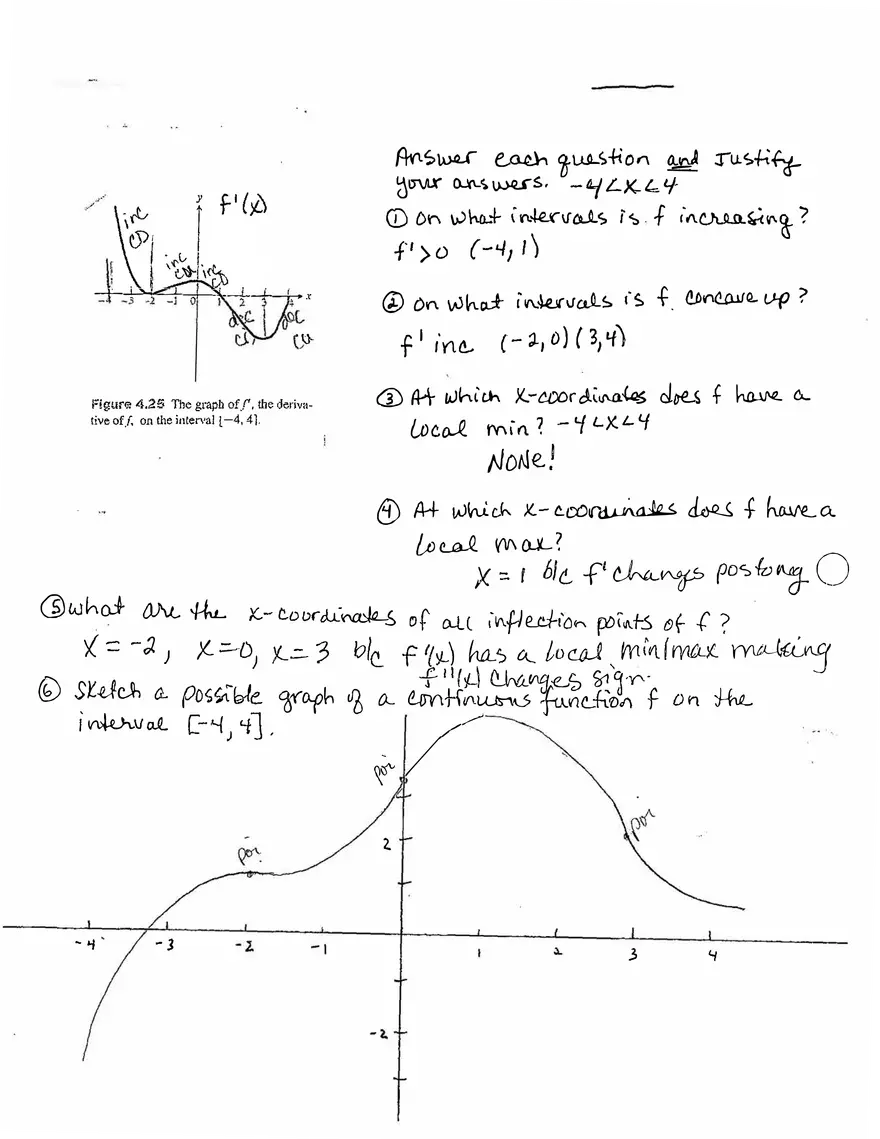 Answer each question and Justify
your answers. -4<x<4
① On what intervals is f increasing?
f'>0 (-4, 1)
② On what intervals is f concave up?
f' inc (-2,0)(3,4)
③ At which x-coordinates does f have a
local min? -4<x<4
NONe!
④ At which x-coordinates does f have a
local max?
x = 1 b/c f' changes pos to neg
y f'(x)
inc
CD
inc
CU
inc
CD
-3 -2 -1 0 1 2 3 4 x
dec
CD
dec
CU
Figure 4.25 The graph of f', the deriva-
tive of f, on the interval [-4, 4].
⑤ What are the x-coordinates of all inflection points of f?
X = -2, x=0, x=3 b/c f'(x) has a local min/max making
f''(x) changes sign.
⑥ Sketch a possible graph of a continuous function f on the
interval [-4, 4].
poi
poi
poi
2
-4 -3 -2 -1 1 2 3 4
-2